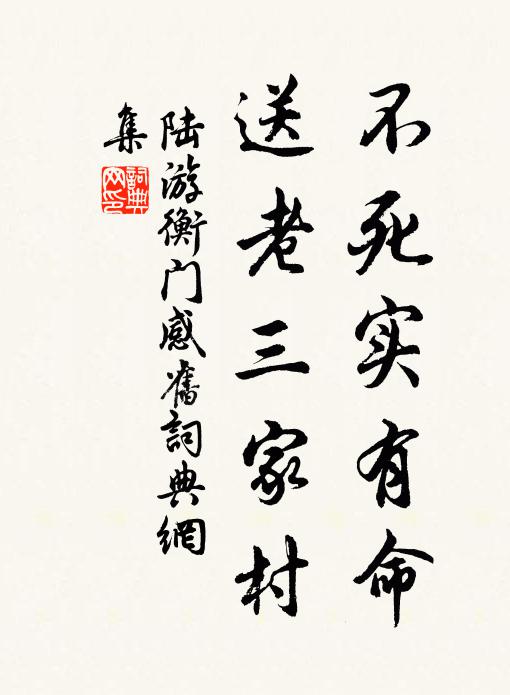 不死实有命
送老三家村
陆游衡门感舊詞典網
集
詞典
网印